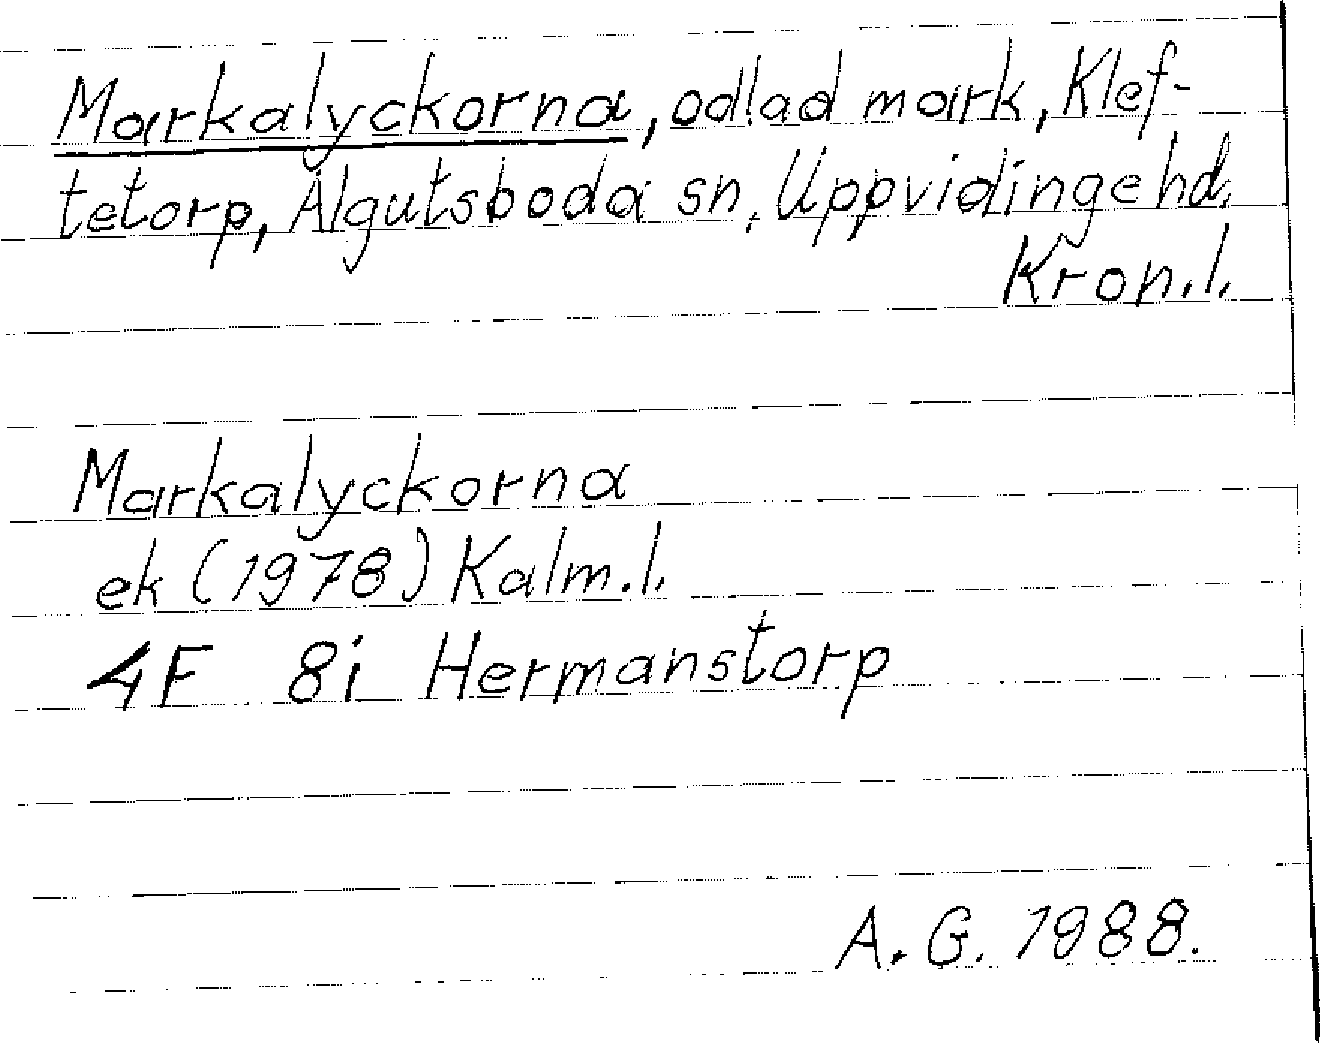 Markalyckorna, odlad mark, Klef-
tetorp, Älgutsboda sn, Uppvidinge hd.
Kron.l.
Markalyckorna
ek (1978) Kalm.l.
4F 8i Hermanstorp
A.G. 1988.